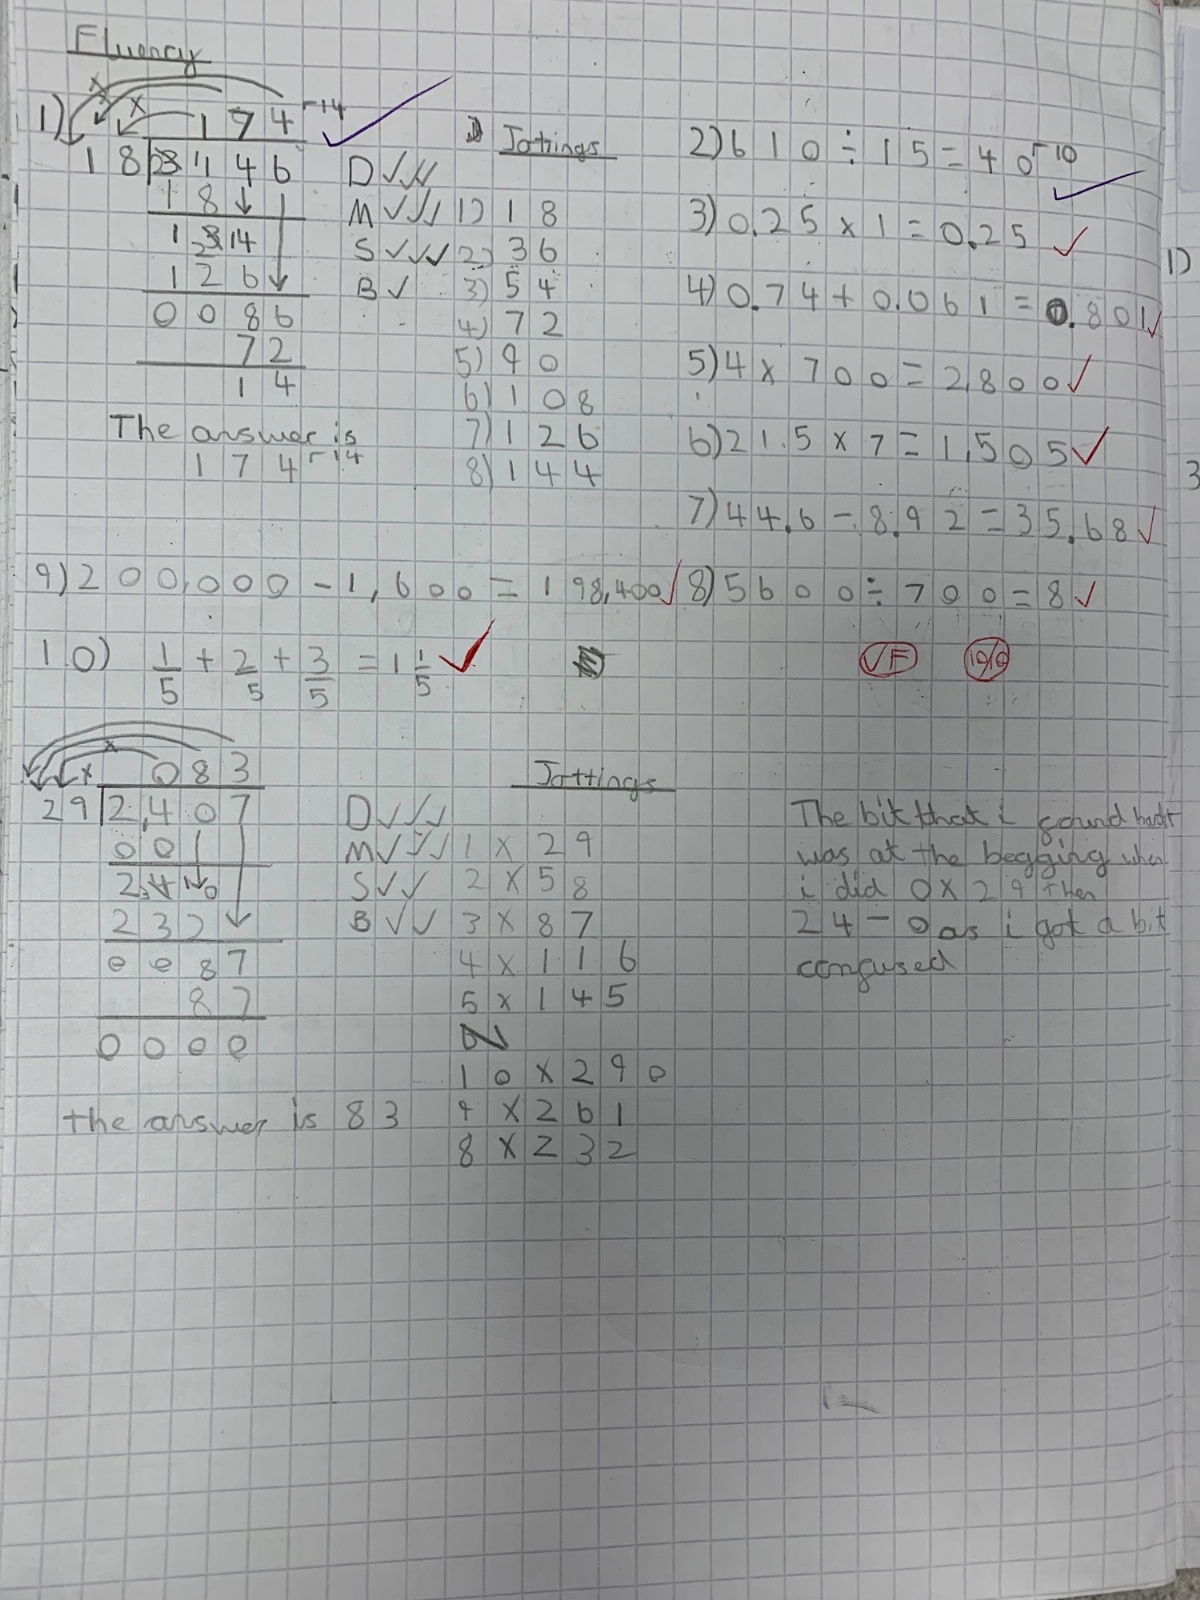 Fluency
1) 174 r14
18 3146 D✓✓✓
18 M✓✓✓
1 3 14 S✓✓✓
126 B✓
0086
72
14
The answer is
174 r14
Jottings
1) 18
2) 36
3) 54
4) 72
5) 90
6) 108
7) 126
8) 144
2) 610 ÷ 15 = 40 r10
3) 0.25 x 1 = 0.25
4) 0.74 + 0.061 = 0.801
5) 4 x 700 = 2,800
6) 21.5 x 7 = 1,505
7) 44.6 - 8.92 = 35.68
9) 200,000 - 1,600 = 198,400
8) 5600 ÷ 700 = 8
10) 1/5 + 2/5 + 3/5 = 1 1/5
VF 10/10
083
29 2,407 D✓✓✓
00 M✓✓✓
240 S✓✓
232 B✓✓
0087
87
0000
the answer is 83
Jottings
1 x 29
2 x 58
3 x 87
4 x 116
5 x 145
10 x 290
9 x 261
8 x 232
The bit that i found hardt
was at the begging when
i did 0 x 29 then
24 - 0 as i got a bit
confused
1)
3